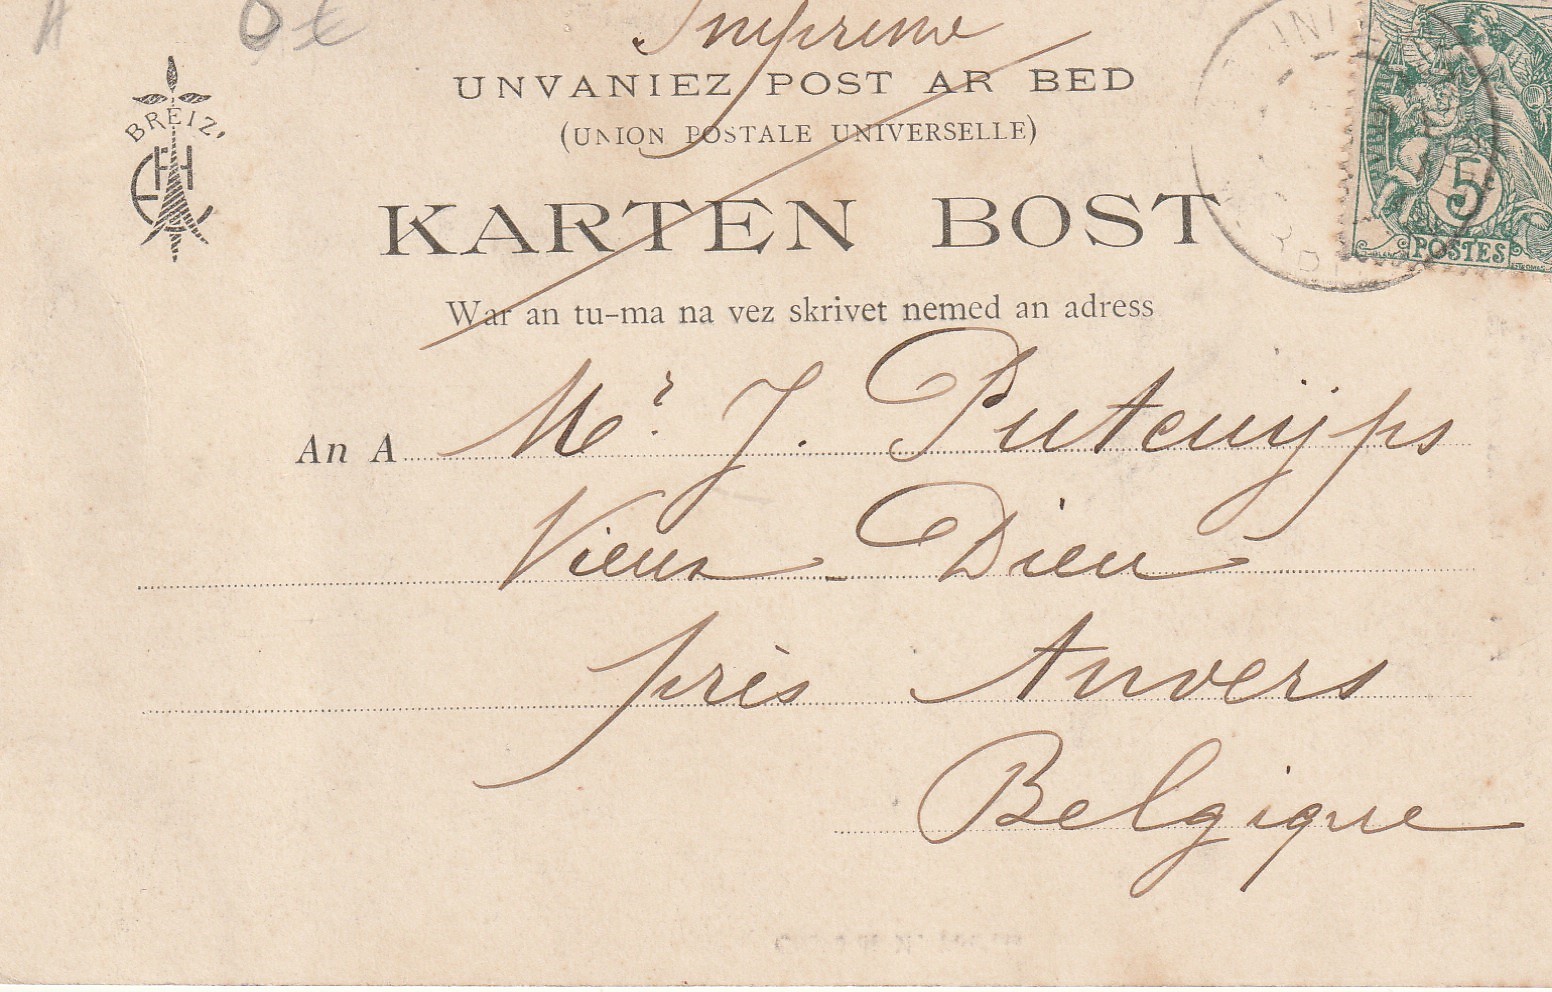 Imprimé
UNVANIEZ POST AR BED
(UNION POSTALE UNIVERSELLE)
BREIZ
KARTEN BOST
War an tu-ma na vez skrivet nemed an adress
5
POSTES
An A Mr. J. Putcuyps
Vieux-Dieu
près Anvers
Belgique